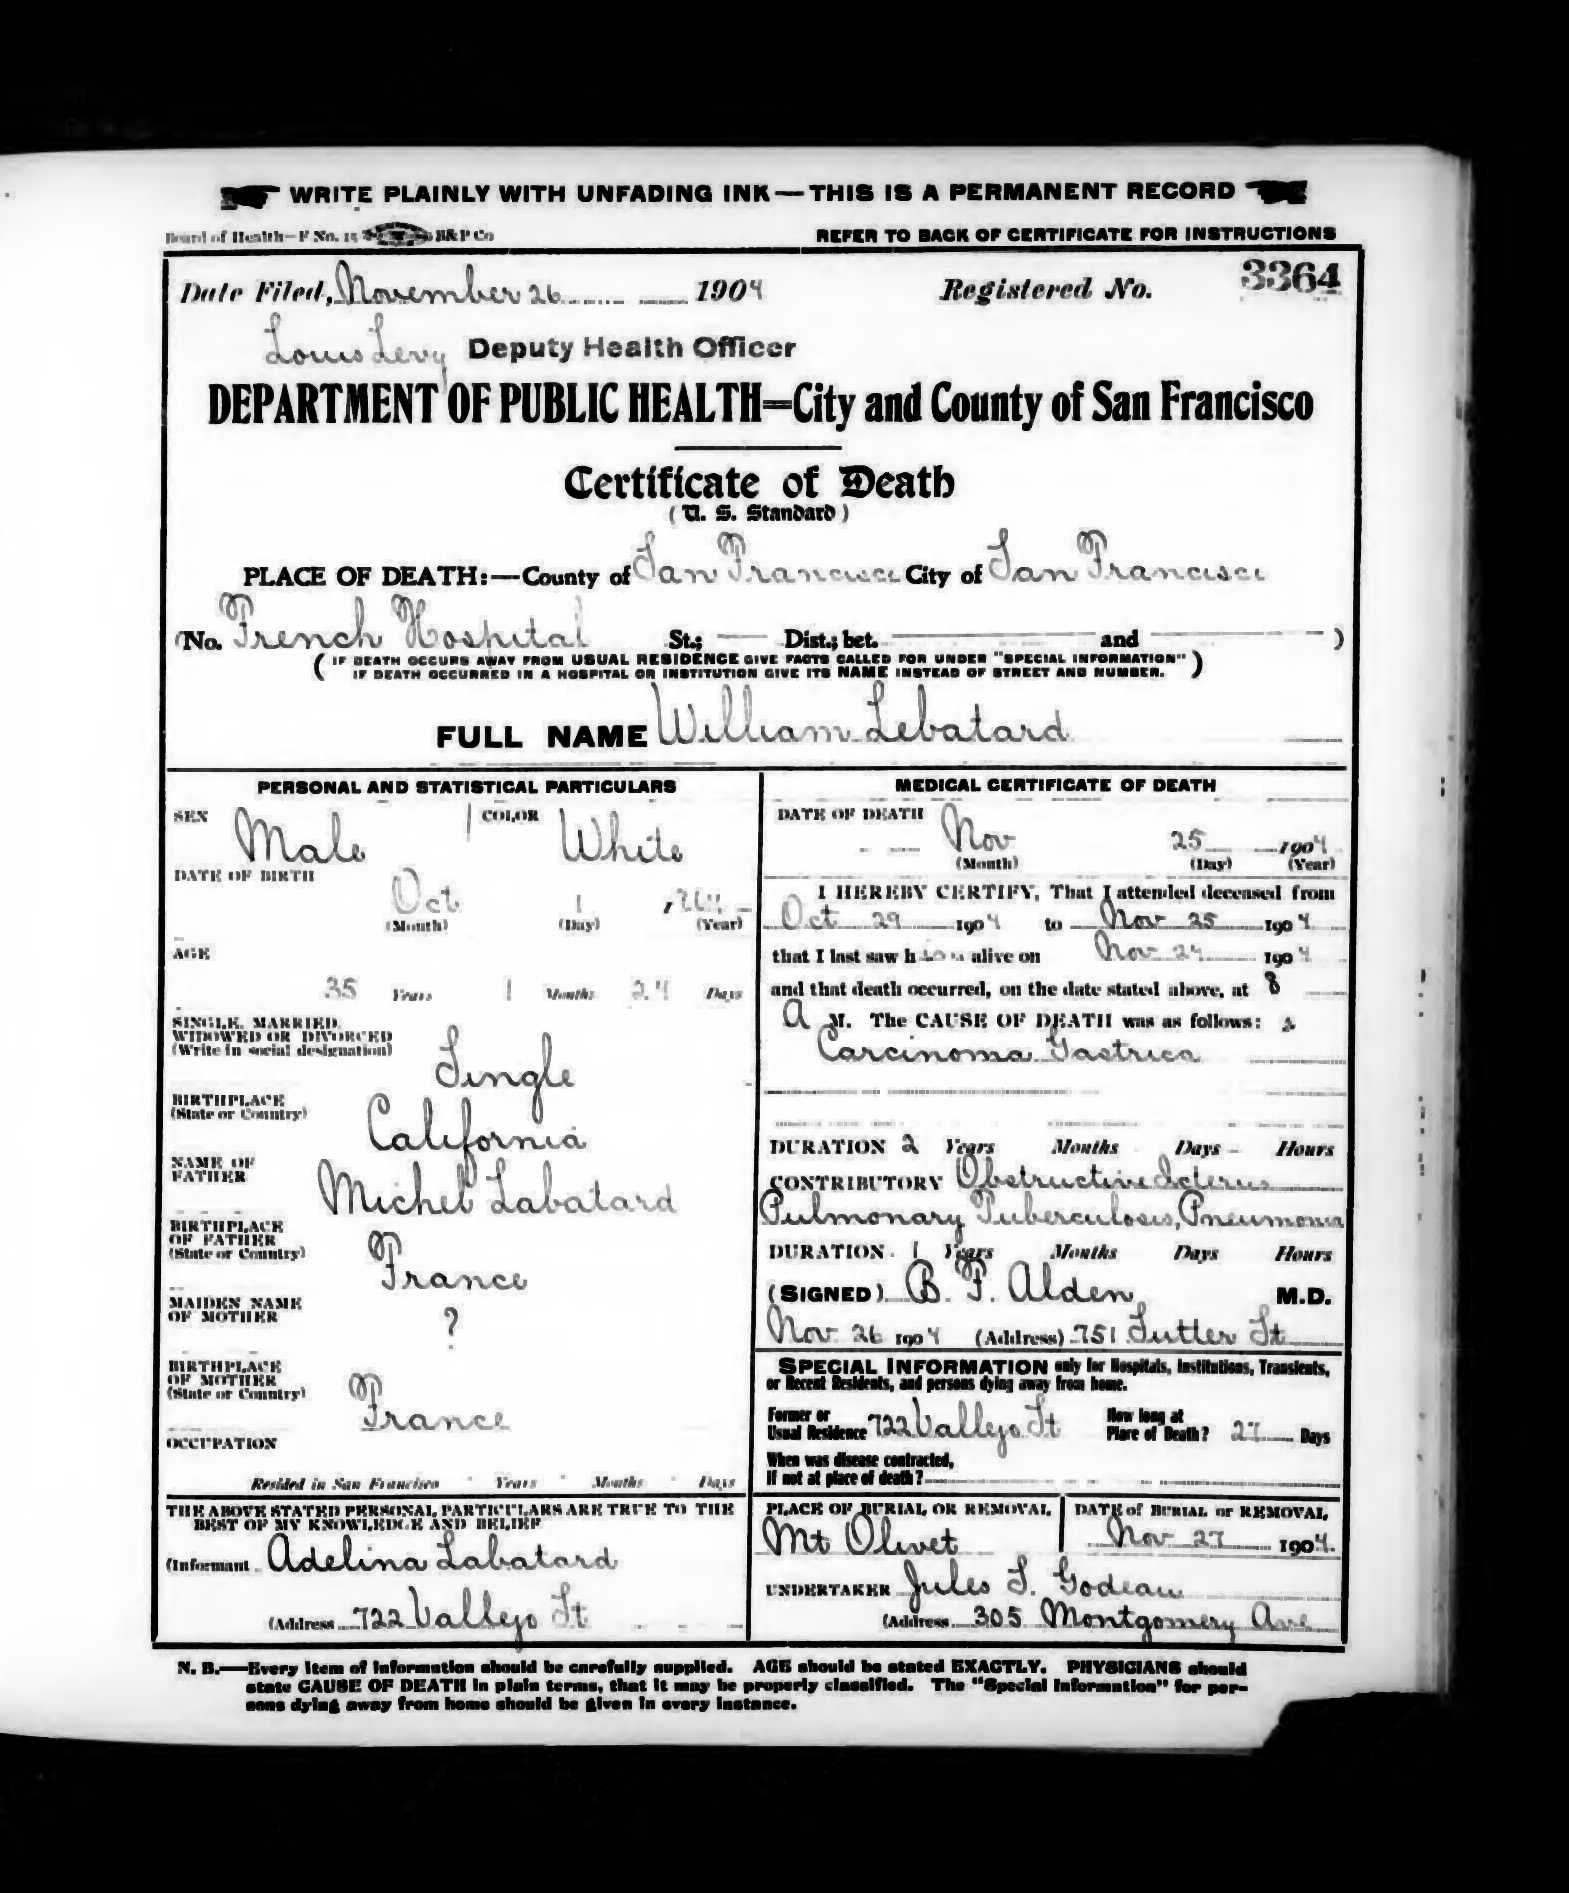 WRITE PLAINLY WITH UNFADING INK—THIS IS A PERMANENT RECORD
Board of Health—F No. 15 B&P Co
REFER TO BACK OF CERTIFICATE FOR INSTRUCTIONS
Date Filed, November 26 1904 Registered No. 3364
Louis Levy Deputy Health Officer
DEPARTMENT OF PUBLIC HEALTH=City and County of San Francisco
Certificate of Death
(U. S. Standard)
PLACE OF DEATH:—County of San Francisco City of San Francisco
(No. French Hospital St.; Dist.; bet. and )
(IF DEATH OCCURS AWAY FROM USUAL RESIDENCE GIVE FACTS CALLED FOR UNDER "SPECIAL INFORMATION"
IF DEATH OCCURRED IN A HOSPITAL OR INSTITUTION GIVE ITS NAME INSTEAD OF STREET AND NUMBER.)
FULL NAME William Lebatard
PERSONAL AND STATISTICAL PARTICULARS
SEX Male COLOR White
DATE OF BIRTH
Oct 1
(Month) (Day) (Year)
AGE
35 Years 1 Months 24 Days
SINGLE, MARRIED,
WIDOWED OR DIVORCED
(Write in social designation)
Single
BIRTHPLACE
(State or Country)
California
NAME OF
FATHER
Michel Labatard
BIRTHPLACE
OF FATHER
(State or Country)
France
MAIDEN NAME
OF MOTHER
?
BIRTHPLACE
OF MOTHER
(State or Country)
France
OCCUPATION
Resided in San Francisco Years Months Days
THE ABOVE STATED PERSONAL PARTICULARS ARE TRUE TO THE
BEST OF MY KNOWLEDGE AND BELIEF
(Informant Adelina Labatard
(Address 722 Vallejo St
MEDICAL CERTIFICATE OF DEATH
DATE OF DEATH
Nov 25 1904
(Month) (Day) (Year)
I HEREBY CERTIFY, That I attended deceased from
Oct 29 1904 to Nov 25 1904
that I last saw him alive on Nov 24 1904
and that death occurred, on the date stated above, at 8
A M. The CAUSE OF DEATH was as follows:
Carcinoma Gastrica
DURATION 2 Years Months Days Hours
CONTRIBUTORY Obstructive Icterus
Pulmonary Tuberculosis, Pneumonia
DURATION 1 Years Months Days Hours
(SIGNED) B. F. Alden M.D.
Nov 26 1904 (Address) 751 Sutter St
SPECIAL INFORMATION only for Hospitals, Institutions, Transients,
or Recent Residents, and persons dying away from home.
Former or
Usual Residence 722 Vallejo St
How long at
Place of Death? 27 Days
When was disease contracted,
If not at place of death?
PLACE OF BURIAL OR REMOVAL
Mt Olivet
DATE of BURIAL or REMOVAL
Nov 27 1904.
UNDERTAKER Jules S. Godeau
(Address 305 Montgomery Ave
N. B.—Every item of information should be carefully supplied. AGE should be stated EXACTLY. PHYSICIANS should
state CAUSE OF DEATH in plain terms, that it may be properly classified. The "Special Information" for per-
sons dying away from home should be given in every instance.